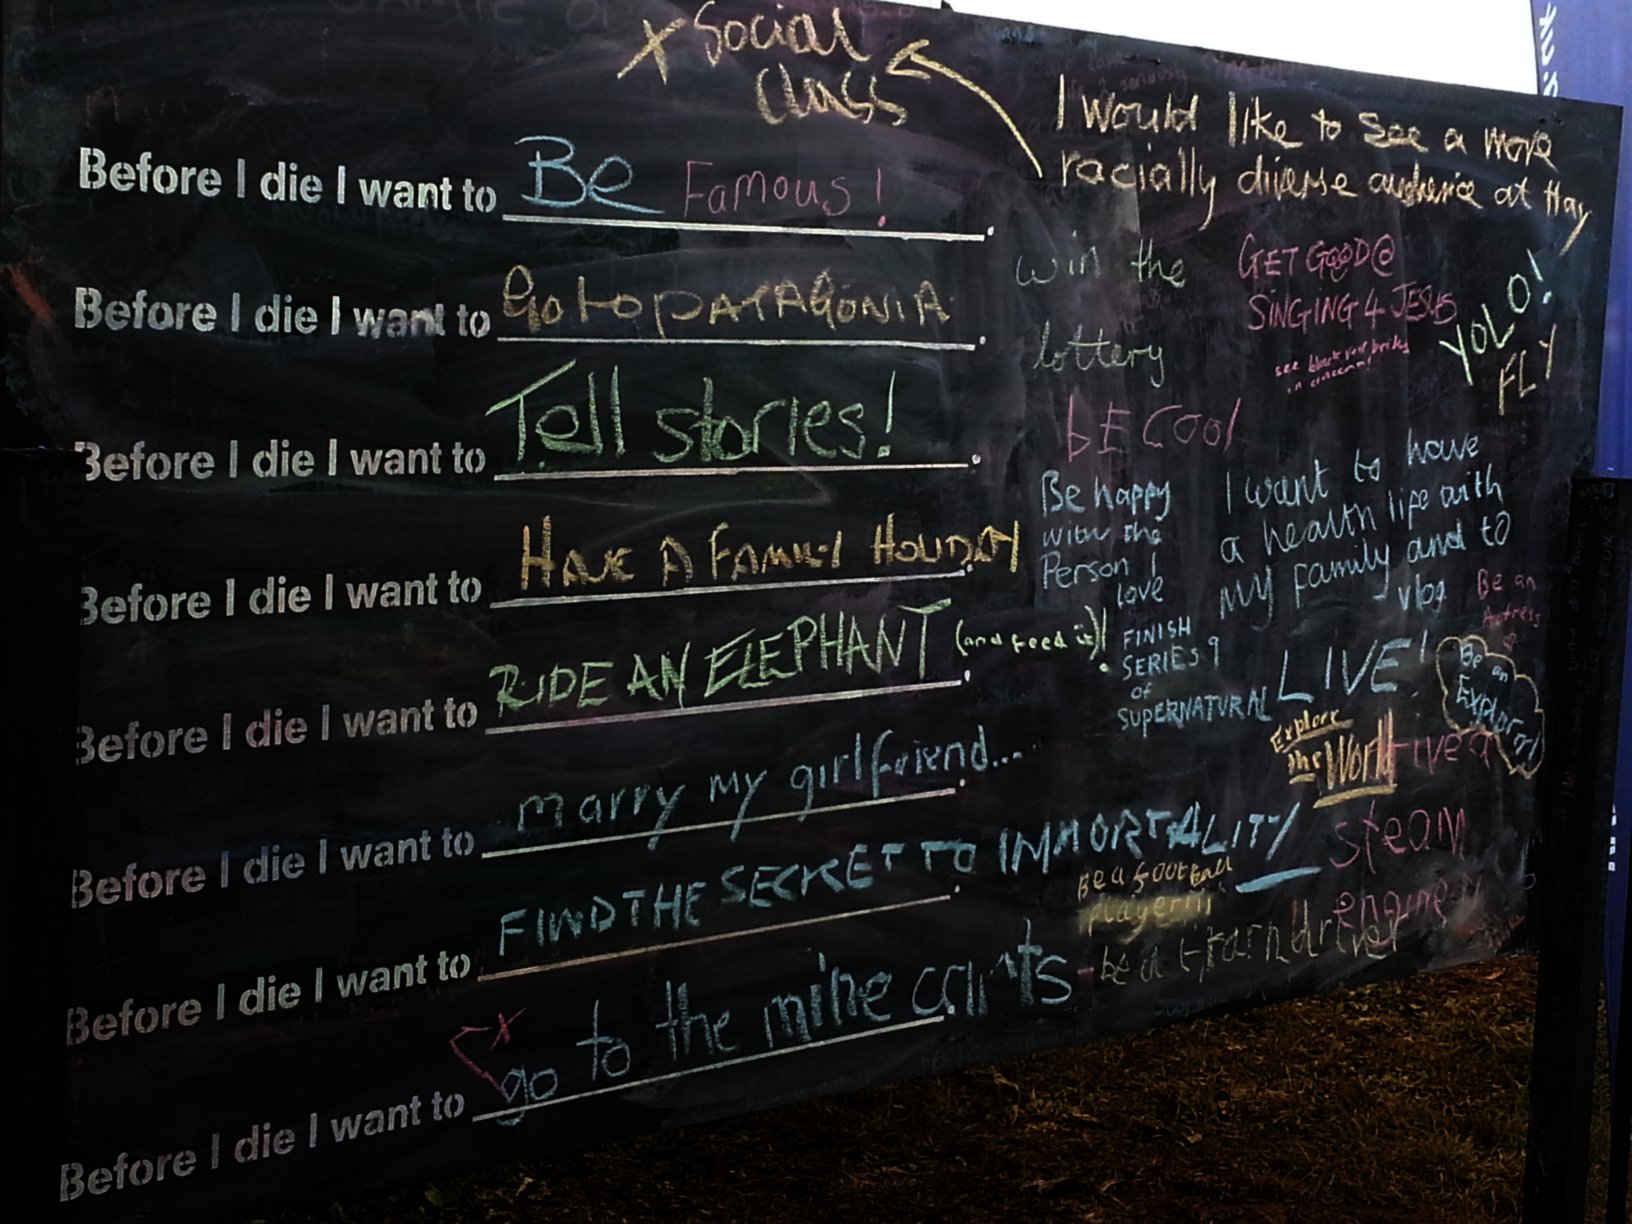 x Social
Class
I would like to see a more
racially diverse audience at Hay
Before I die I want to Be Famous!
Before I die I want to Go to PATAGONIA
Before I die I want to Tell stories!
Before I die I want to HAVE A FAMILY HOLIDAY
Before I die I want to RIDE AN ELEPHANT (and feed it)!
Before I die I want to marry my girlfriend....
Before I die I want to FIND THE SECRET TO IMMORTALITY
Before I die I want to go to the mine carts
win the
lottery
GET GOOD @
SINGING 4 JESUS
YOLO!
FLY
bE COOl
Be happy
with the
Person I
love
I want to have
a health life with
my family and to
vlog
Be an
Actress
FINISH
SERIES 9
of
SUPERNATURAL
LIVE!
Be
an
Explorer!
Explore
the World
steam
engine
Be a football
player!!!
be a train driver